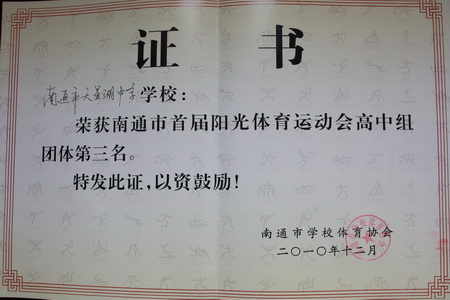 证 书
南通市天星湖中学学校：
荣获南通市首届阳光体育运动会高中组
团体第三名。
特发此证，以资鼓励！
南通市学校体育协会
二〇一〇年十二月